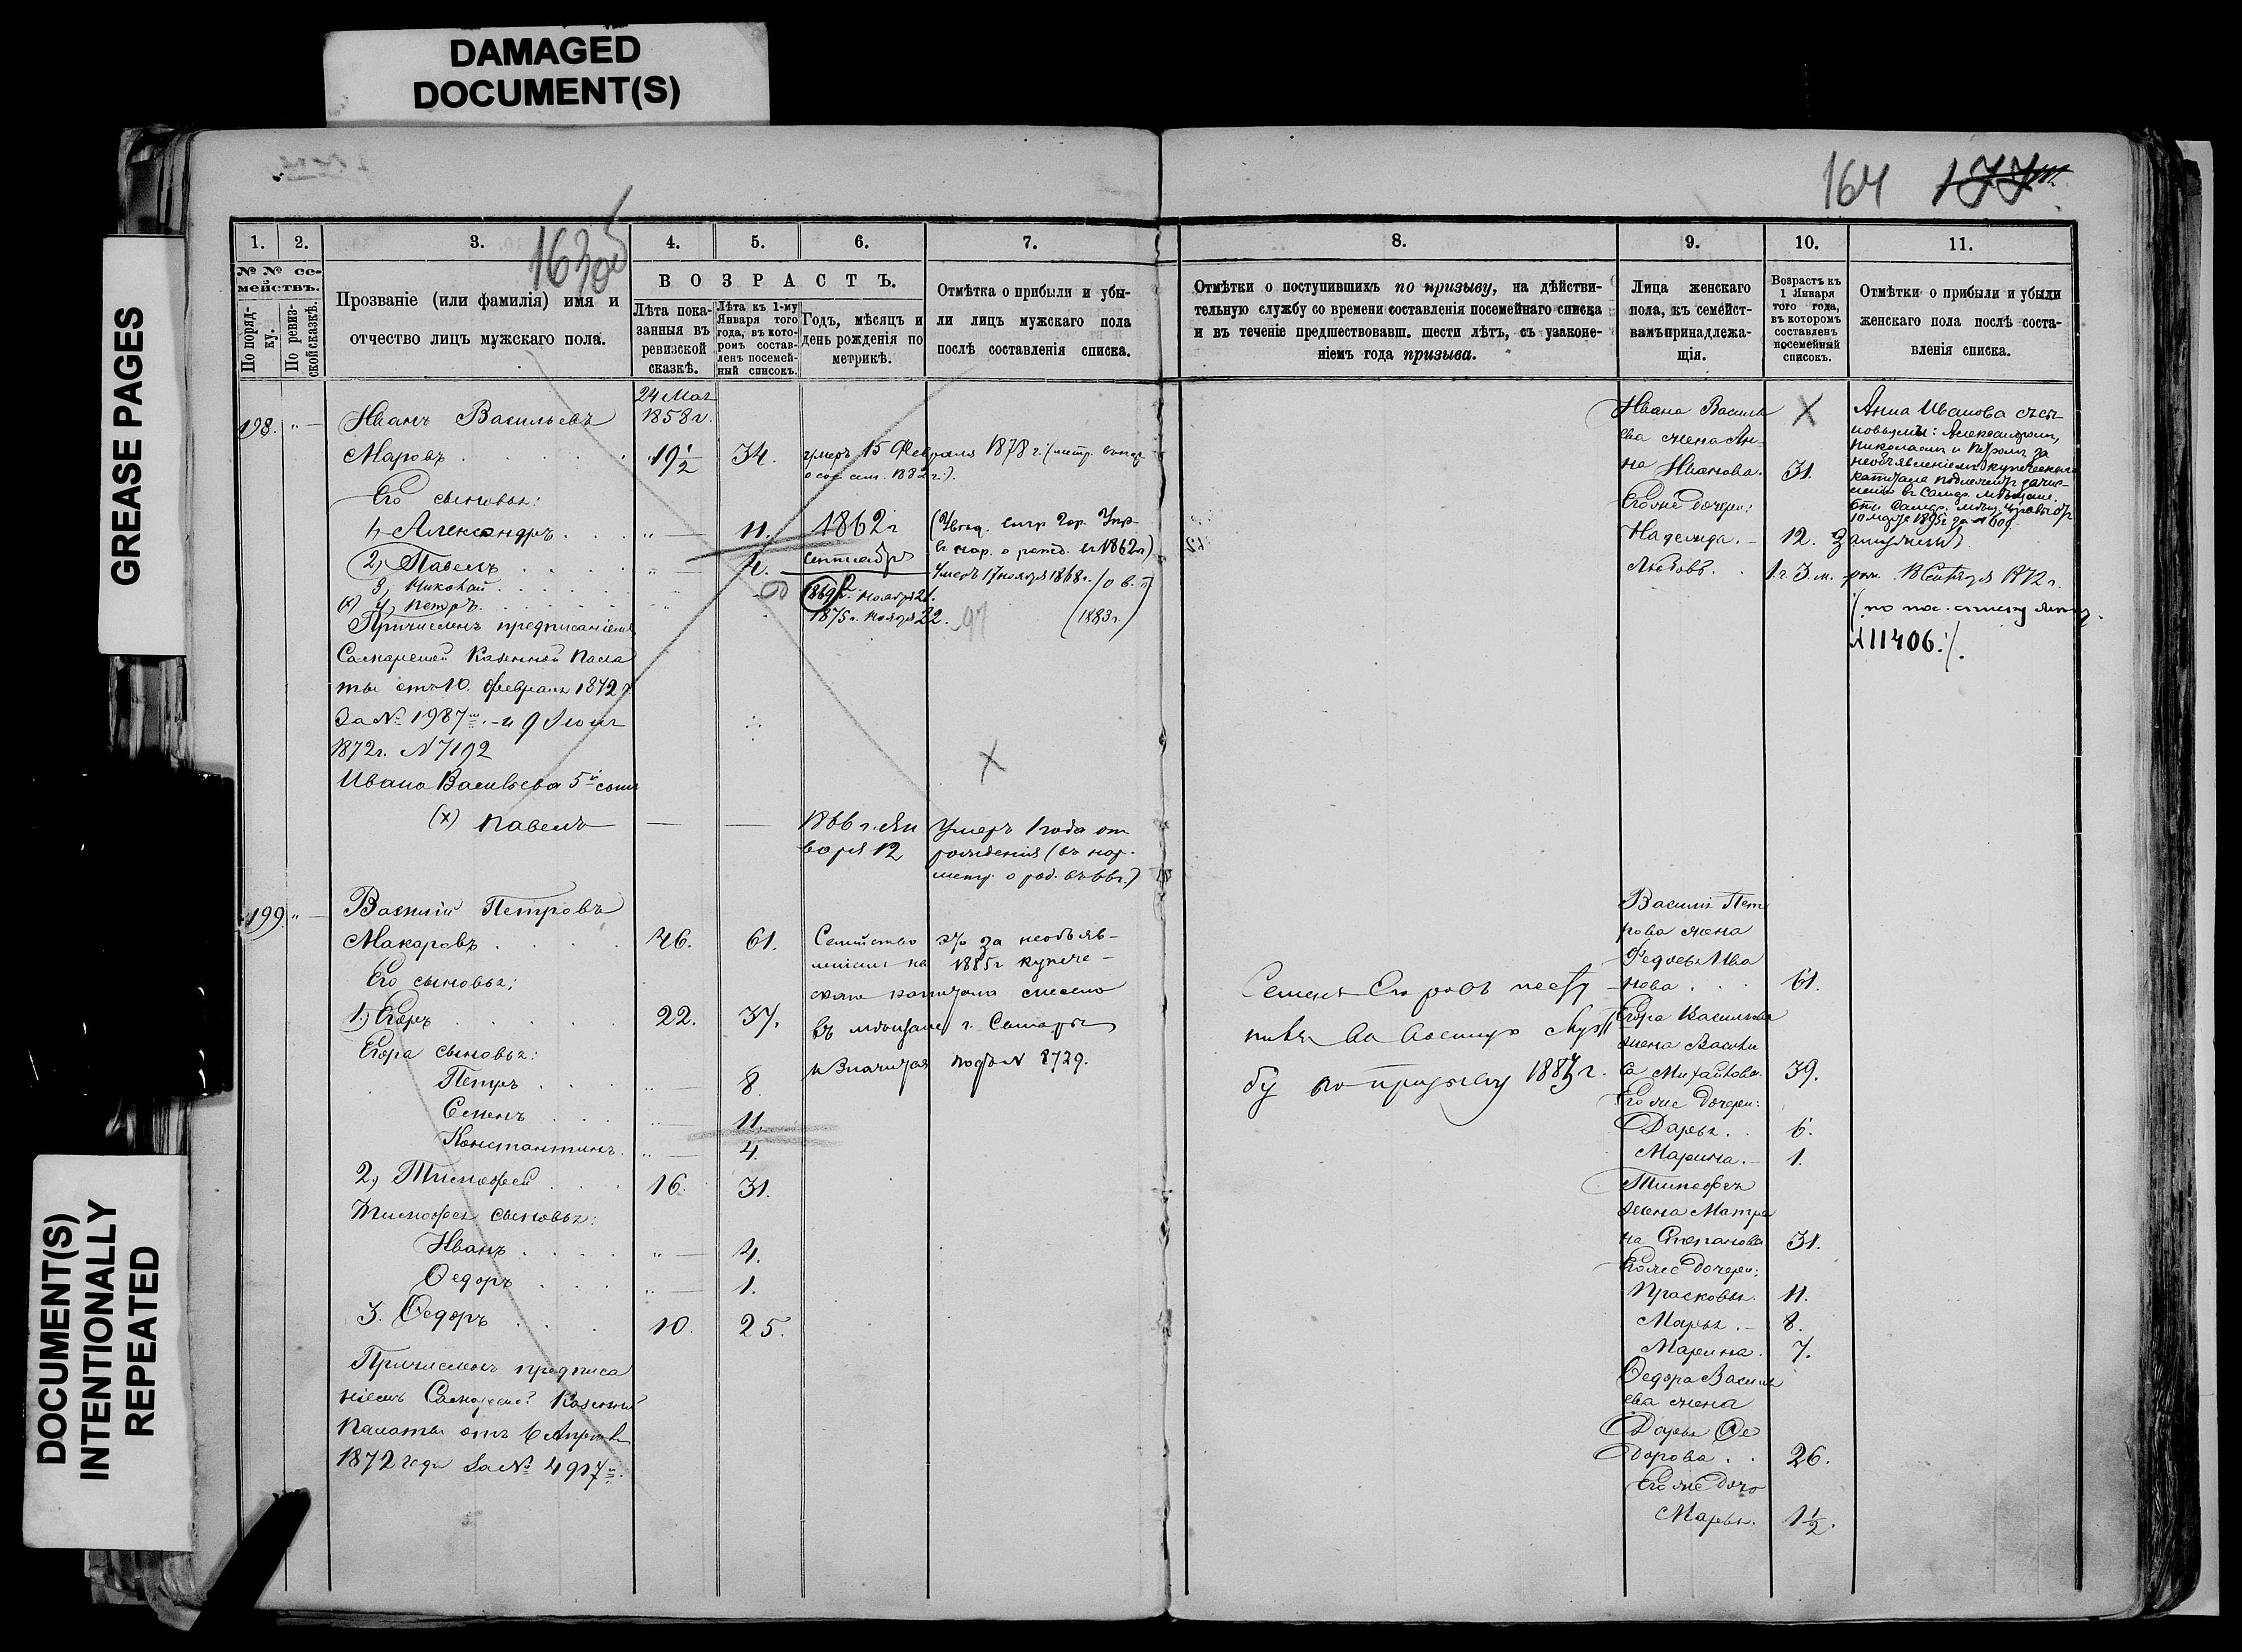 DAMAGED
DOCUMENT(S)
GREASE PAGES
DOCUMENT(S)
INTENTIONALLY
REPEATED
164
1.
2.
3.
4.
5.
6.
7.
№ № се-
мействъ.
По поряд-
ку.
По ревиз-
ской сказкѣ.
Прозваніе (или фамилія) имя и
отчество лицъ мужскаго пола.
ВОЗРАСТЪ.
Лѣта пока-
занныя въ
ревизской
сказкѣ.
Лѣта къ 1-му
Января того
года, въ кото-
ромъ состав-
ленъ посемей-
ный списокъ.
Годъ, мѣсяцъ и
день рожденія по
метрикѣ.
Отмѣтка о прибыли и убы-
ли лицъ мужскаго пола
послѣ составленія списка.
198.
Иванъ Васильевъ
24 Мая
1858 г.
Маровъ
19 1/2
34.
умеръ 15 Февраля 1878 г.
Его сыновья:
1, Александръ
11.
1862 г
сентября
2, Павелъ
4.
Умеръ 17 ноября 1868 г.
3, Николай
1869 г. ноября 21.
(х) 4, Петръ
1875 г. ноября 22.
(1883 г.)
Причисленъ предписаніемъ
Самарской Казенной Пала
ты отъ 10. февраля 1872 г
За № 1987 и 9 Июня
1872 г. N 7192
Ивана Васильева 5й сынъ
(х) Павелъ
1866 г. Ян
варя 12
Умеръ 1 года от
рожденія (въ
199.
Василій Петровъ
Макаровъ
46.
61.
Семейство это за необъяв-
леніемъ на 1885 г купече-
скаго капитала
въ мѣщане г. Самары
и значится подъ N 8729.
Его сыновья:
1, Егоръ
22.
37.
Егора сыновья:
Петръ
8.
Семенъ
11.
Константинъ
4.
2, Тимофей
16.
31.
Тимофея сыновья:
Иванъ
4.
Федоръ
1.
3. Федоръ
10.
25.
Причисленъ предписа
ніемъ Самарской Казенной
Палаты отъ 6 Апрѣля
1872 года За № 4917
8.
9.
10.
11.
Отмѣтки о поступившихъ по призыву, на дѣйстви-
тельную службу со времени составленія посемейнаго списка
и въ теченіе предшествовавш. шести лѣтъ, съ узаконе-
ніемъ года призыва.
Лица женскаго
пола, къ семейст-
вамъ принадлежа-
щія.
Возрастъ къ
1 Января
того года,
въ которомъ
составленъ
посемейный
списокъ.
Отмѣтки о прибыли и убыли
женскаго пола послѣ соста-
вленія списка.
Ивана Василь
ева жена Ан-
на Иванова.
31.
Его же дочери:
Надежда.
12.
Замужемъ.
Любовь.
1 г. 3. м.
Анна Иванова съ сы-
новьями: Александромъ,
Николаемъ и Петромъ за
необъявленіемъ купеческаго
капитала подлежитъ зачис-
ленію въ Самар. мѣщане.
рож. 18 Сентября 1872 г.
N 11406.
Семенъ Егоровъ посту
пилъ на военную служ
бу по призыву
Василія Пет
рова жена
Федосья Ива
нова
61.
Егора Васильева
жена Васили
са Михайлова.
39.
Его же дочери:
Дарья.
6.
Марина.
1.
Тимофея
жена Матре
на Степанова
31.
Его же дочери:
Прасковья.
11.
Марья.
8.
Марина.
7.
Федора Василь
ева жена
Дарья Фе
дорова
26.
Его же дочь
Марья.
1 1/2.